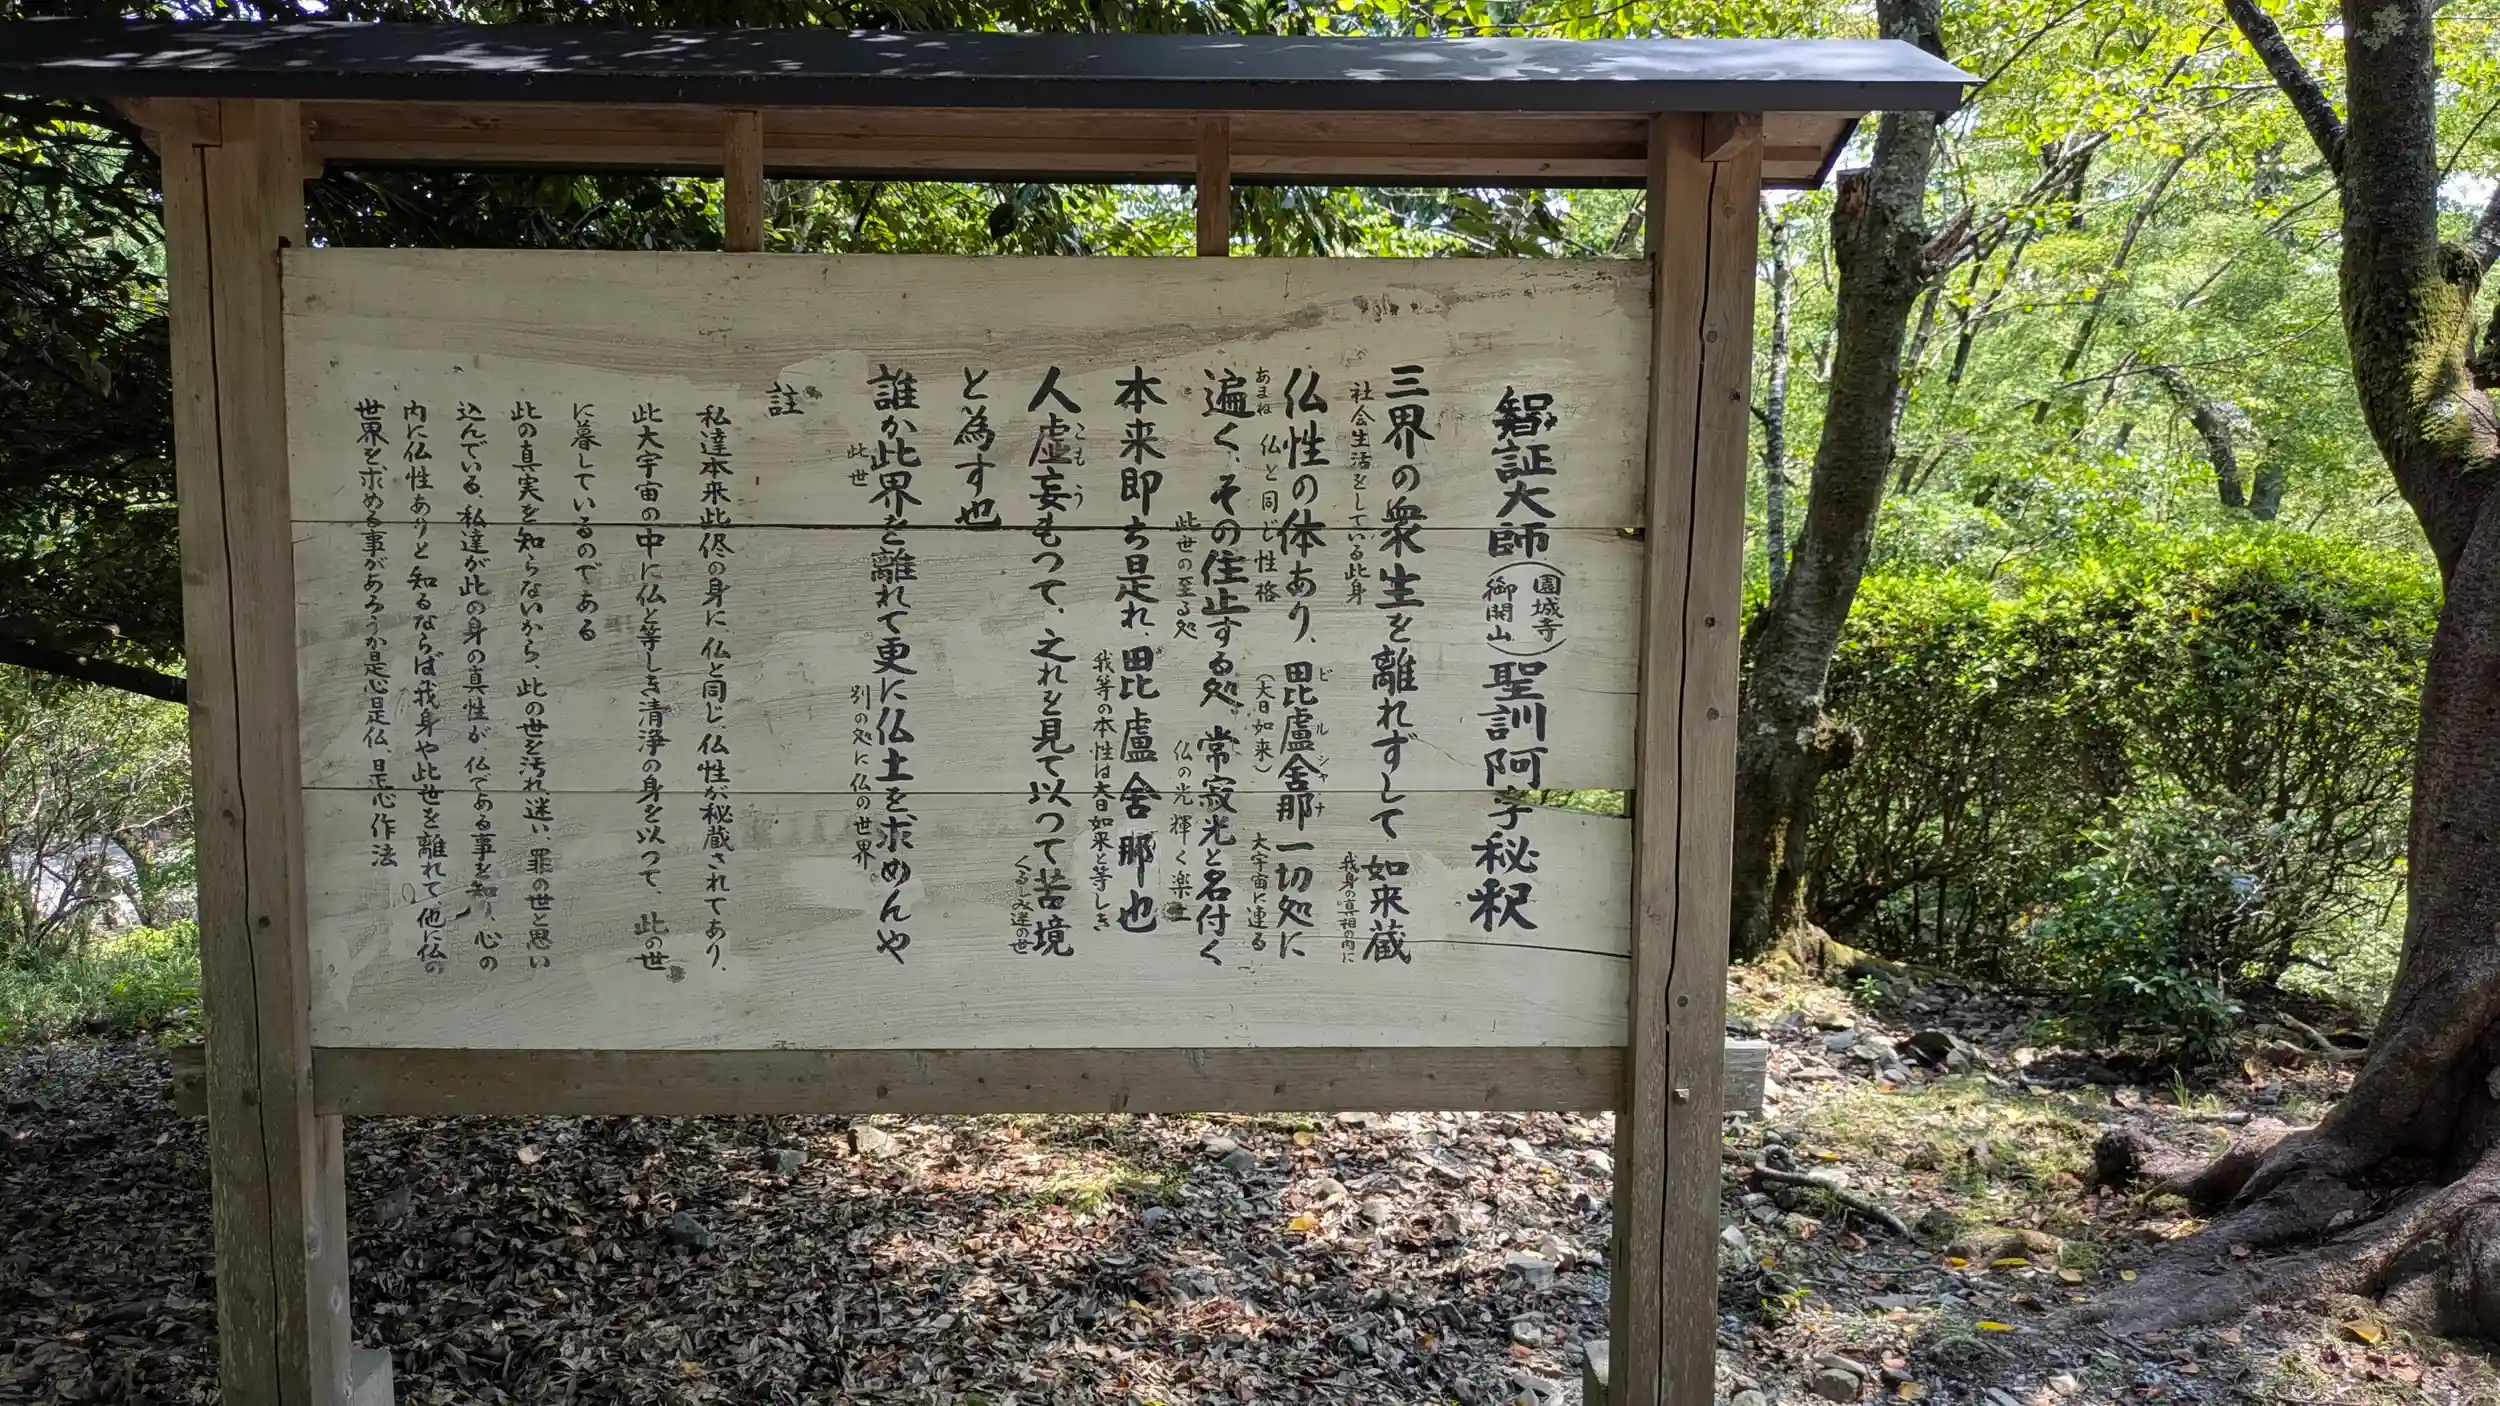 智証大師(園城寺御開山)聖訓阿字秘釈
三界の衆生を離れずして如来蔵
社会生活をしている此身
我身の真相の内に
仏性の体あり、毘盧舎那一切処に
ビルシャナ
仏と同じ性格
(大日如来)
大宇宙に連る
遍く、その住止する処、常寂光と名付く
あまね
此世の至る処
仏の光輝く楽土
本来即ち是れ、毘盧舎那也
我等の本性は大日如来と等しき
人虚妄もつて、之れを見て以つて苦境
こもう
くるしみ迷の世
と為す也
誰か此界を離れて更に仏土を求めんや
此世
別の処に仏の世界
註
私達本来此侭の身に、仏と同じ、仏性が秘蔵されてあり、
此大宇宙の中に仏と等しき清浄の身を以つて、此の世
に暮しているのである
此の真実を知らないから、此の世を汚れ、迷い、罪の世と思い
込んでいる、私達が此の身の真性が、仏である事を知り、心の
内に仏性ありと知るならば我身や此世を離れて、他に仏の
世界を求める事があろうか是心是仏、是心作法